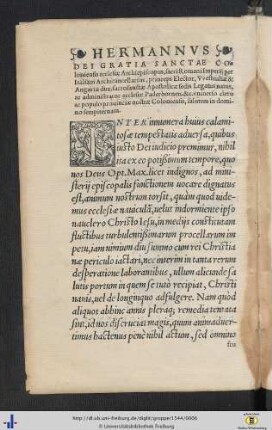 HERMANNVS
DEI GRATIA SANCTAE CO
loniensis ecclesiae Archiepiscopus, sacri Romani Imperij per
Italiam Archicancellarius, princeps Elector, Vuestualiae &
Angariae dux, sacrosanctae Apostolicae sedis Legatus natus,
ac administrator ecclesiae Paderbornen. &c. vniuerso clero
ac populo prouinciae nostrae Coloniensis, salutem in domi
no sempiternam.
INTER innumera huius calami
tosae tempestatis aduersa, quibus
iusto Dei iudicio premimur, nihil
ita ex eo potissimum tempore, quo
nos Deus Opt. Max. licet indignos, ad mini
sterij episcopalis functionem uocare dignatus
est, animum nostrum torsit, quàm quod uide-
mus ecclesiae nauiculã, uelut indormiente ipso
nauclero Christo Iesu, in medijs conflictantem
fluctibus turbulentissimarum procellarum im
petu, iam nimium diu summo cum rei Christia
nae periculo iactari, nec interim in tanta rerum
desperatione laborantibus, ullum alicunde sa
lutis portum in quem se tutò recipiat, Christi
anis, uel de longinquo adfulgere. Nam quòd
aliquot abhinc annis pleraq; remedia tentata
sint, id nos discruciat magis, quum animaduer-
timus hactenus penè nihil actum, sed omnino
http://dl.ub.uni-freiburg.de/diglit/gropper1544/0006
© Universitätsbibliothek Freiburg